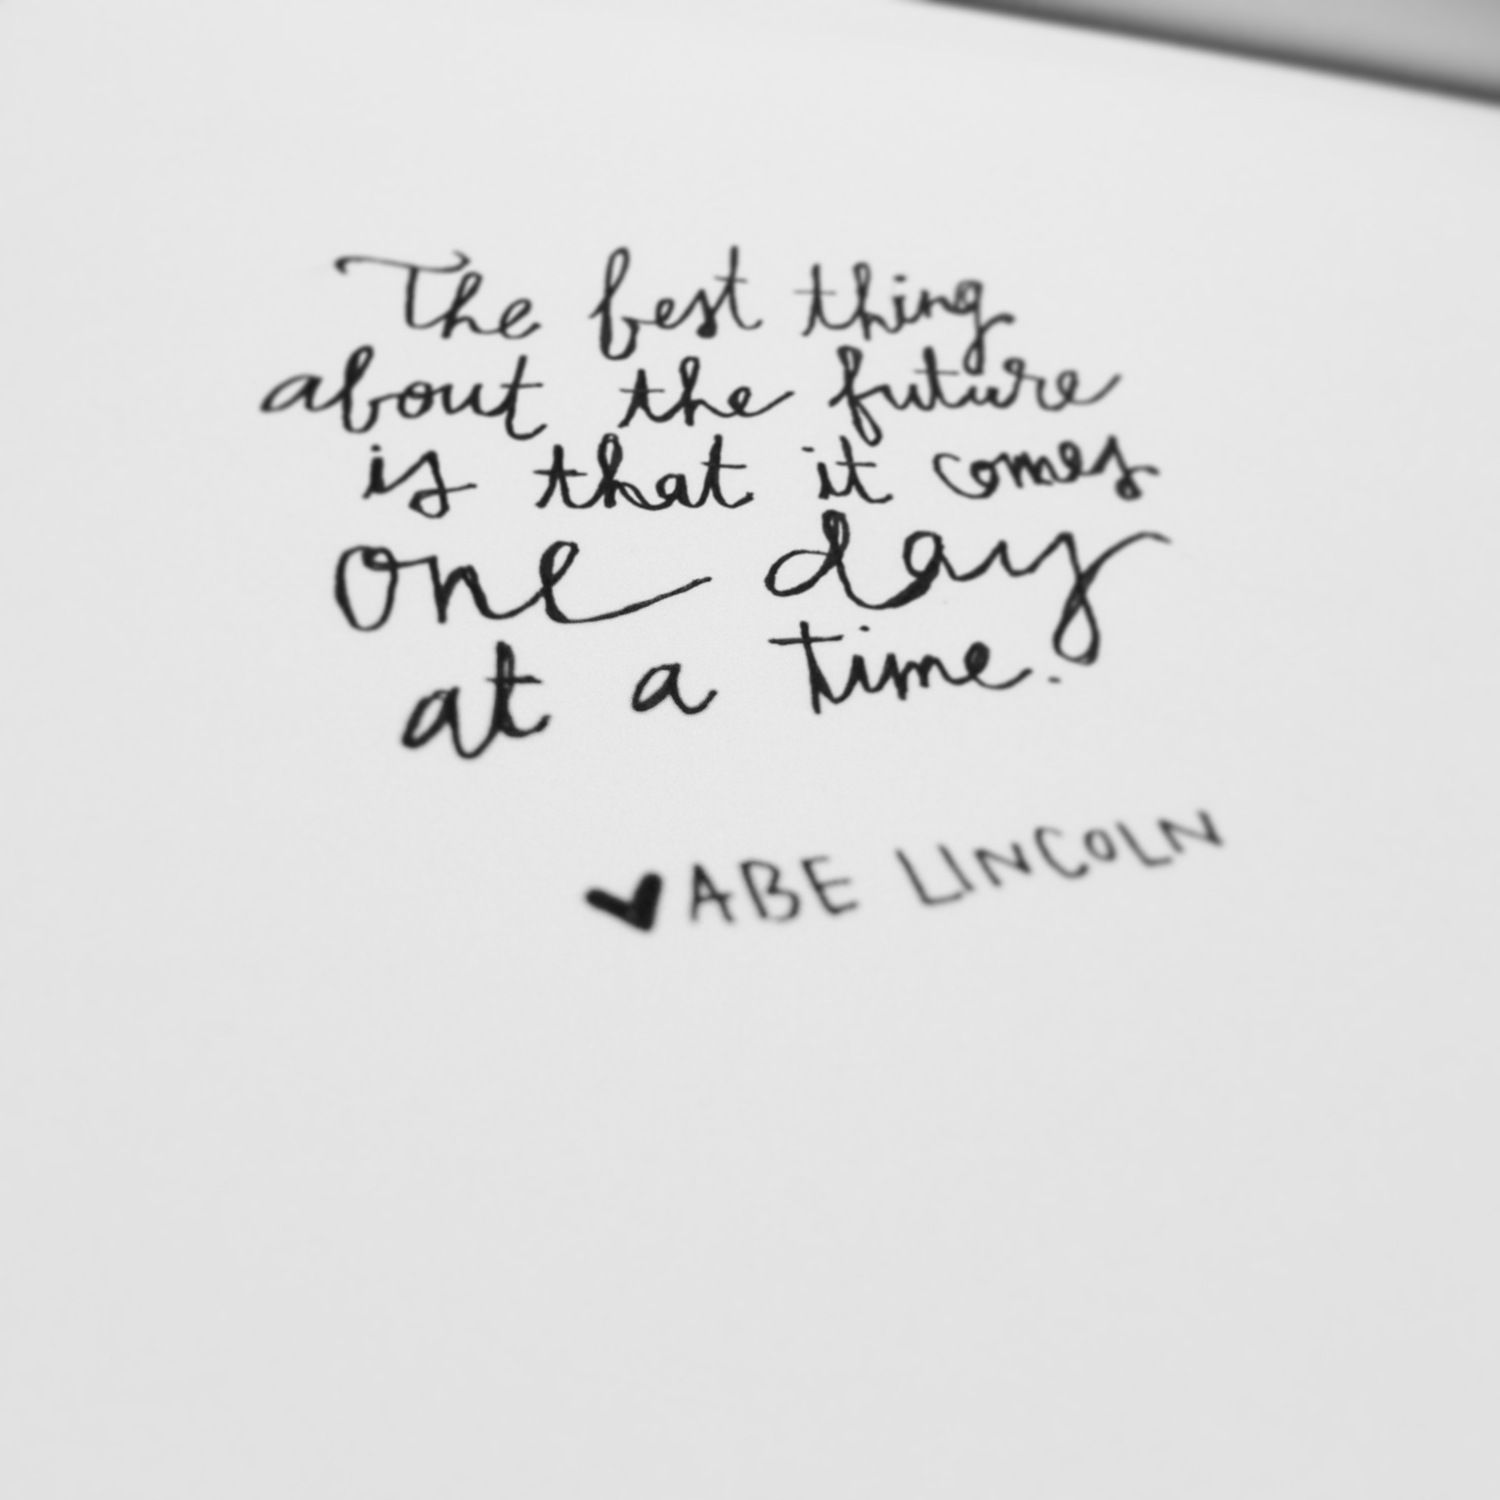 The best thing
about the future
is that it comes
one day
at a time.
♥ ABE LINCOLN